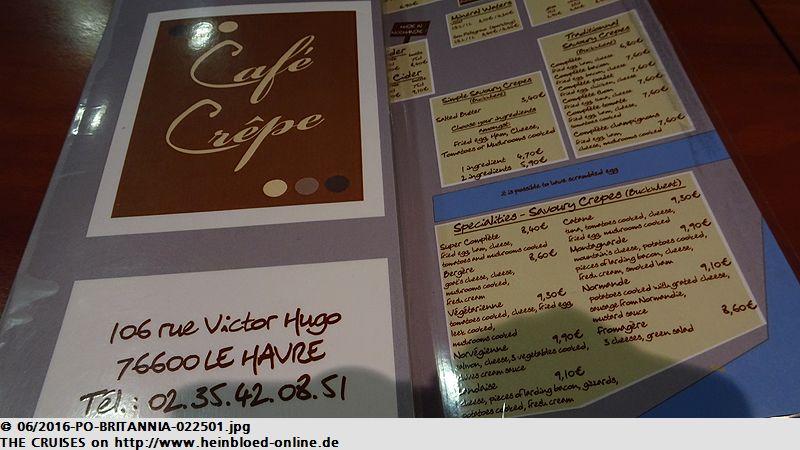 Café
Crêpe
106 rue Victor Hugo
76600 LE HAVRE
Tél.: 02.35.42.08.51
MADE IN
NORMANDIE
Cider
Mineral Waters
Simple Savoury Crepes
(Buckwheat)
Salted Butter 3,60€
Choose your ingredients
amongst:
Fried egg, Ham, Cheese,
Tomatoes or Mushrooms cooked
1 ingredient 4,70€
2 ingredients 5,90€
Traditionnal
Savoury Crepes
(Buckwheat)
Complète 6,80€
fried egg, ham, cheese
Complète bacon 7,60€
fried egg, bacon, cheese
Complète poulet 7,60€
fried egg, chicken, cheese
Complète thon 7,60€
fried egg, tuna, cheese
Complète tomate 7,60€
fried egg, ham, cheese,
tomatoes cooked
Complète champignons 7,60€
fried egg, ham,
cheese, mushrooms cooked
it is possible to have scrambled egg
Specialities - Savoury Crepes (Buckwheat)
Super Complète 8,40€
fried egg, ham, cheese,
tomatoes and mushrooms cooked
Bergère 8,60€
goat's cheese, cheese,
mushrooms cooked
fresh cream
Végétarienne 9,30€
tomatoes cooked, cheese, fried egg,
leek cooked,
mushrooms cooked
Norvégienne 9,90€
salmon, cheese, 3 vegetables cooked,
chives cream sauce
9,10€
cheese, pieces of larding bacon, gizzards,
potatoes cooked, fresh cream
Catane 9,30€
tuna, tomatoes cooked, cheese,
fried egg, mushrooms cooked
Montagnarde 9,90€
mountain's cheese, potatoes cooked,
pieces of larding bacon, cheese,
fresh cream, smoked ham
Normande 9,10€
potatoes cooked with grated cheese,
sausage from Normandie,
mustard sauce
Fromagère 8,60€
3 cheeses, green salad
© 06/2016-PO-BRITANNIA-022501.jpg
THE CRUISES on http://www.heinbloed-online.de